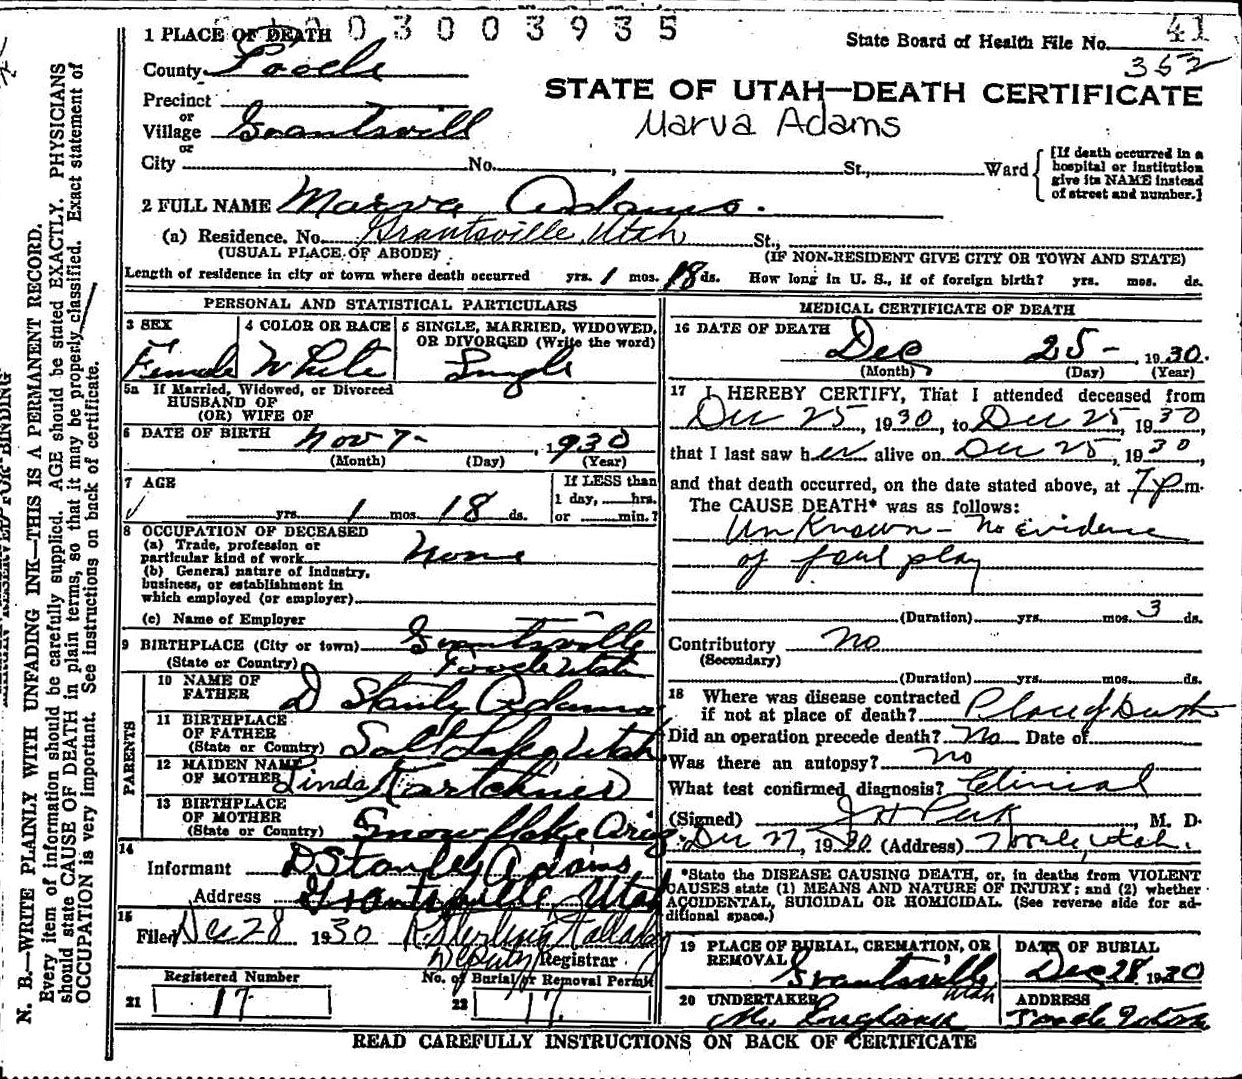 0 0 3 0 0 3 9 3 5
1 PLACE OF DEATH
State Board of Health File No. 41
352
County Tooele
STATE OF UTAH—DEATH CERTIFICATE
Precinct
or
Village Grantsvill
Marva Adams
or
City No. , St., Ward
[If death occurred in a hospital or institution give its NAME instead of street and number.]
2 FULL NAME Marva Adams.
(a) Residence. No. Grantsville, Utah St.,
(USUAL PLACE OF ABODE) (IF NON-RESIDENT GIVE CITY OR TOWN AND STATE)
Length of residence in city or town where death occurred yrs. 1 mos. 18 ds. How long in U. S., if of foreign birth? yrs. mos. ds.
PERSONAL AND STATISTICAL PARTICULARS
3 SEX Female
4 COLOR OR RACE White
5 SINGLE, MARRIED, WIDOWED, OR DIVORCED (Write the word) Single
5a If Married, Widowed, or Divorced
HUSBAND OF
(OR) WIFE OF
6 DATE OF BIRTH Nov 7- , 1930
(Month) (Day) (Year)
7 AGE
yrs. 1 mos. 18 ds.
If LESS than
1 day, hrs.
or min.?
8 OCCUPATION OF DECEASED
(a) Trade, profession or
particular kind of work None
(b) General nature of industry,
business, or establishment in
which employed (or employer)
(c) Name of Employer
9 BIRTHPLACE (City or town) Grantsville
(State or Country) Tooele Utah
PARENTS
10 NAME OF
FATHER D Stanly Adams
11 BIRTHPLACE
OF FATHER
(State or Country) Salt Lake Utah
12 MAIDEN NAME
OF MOTHER Linda Kartchner
13 BIRTHPLACE
OF MOTHER
(State or Country) Snowflake Ariz
14
Informant D Stanley Adams
Address Grantsville Utah
15
Filed Dec 28 1930 R Sterling
Deputy Registrar
Registered Number No. of Burial or Removal Permit
21 17 22 17
MEDICAL CERTIFICATE OF DEATH
16 DATE OF DEATH Dec 25- , 1930.
(Month) (Day) (Year)
17 I HEREBY CERTIFY, That I attended deceased from
Dec 25, 1930, to Dec 25, 1930
that I last saw her alive on Dec 25, 1930,
and that death occurred, on the date stated above, at 7 p.m.
The CAUSE DEATH* was as follows:
UnKnown - No Evidence
of foul play
(Duration) yrs. mos. 3 ds.
Contributory No
(Secondary)
(Duration) yrs. mos. ds.
18 Where was disease contracted
if not at place of death? Place of Death
Did an operation precede death? No Date of
Was there an autopsy? No
What test confirmed diagnosis? Clinical
(Signed) J H Peck , M. D.
Dec 27, 1930 (Address) Tooele, Utah.
*State the DISEASE CAUSING DEATH, or, in deaths from VIOLENT
CAUSES state (1) MEANS AND NATURE OF INJURY; and (2) whether
ACCIDENTAL, SUICIDAL OR HOMICIDAL. (See reverse side for ad-
ditional space.)
19 PLACE OF BURIAL, CREMATION, OR
REMOVAL Grantsville
Utah
DATE OF BURIAL
Dec 28 1930
20 UNDERTAKER
ADDRESS
Tooele Utah
READ CAREFULLY INSTRUCTIONS ON BACK OF CERTIFICATE
N. B.—WRITE PLAINLY WITH UNFADING INK—THIS IS A PERMANENT RECORD.
Every item of information should be carefully supplied. AGE should be stated EXACTLY. PHYSICIANS
should state CAUSE OF DEATH in plain terms, so that it may be properly classified. Exact statement of
OCCUPATION is very important. See instructions on back of certificate.